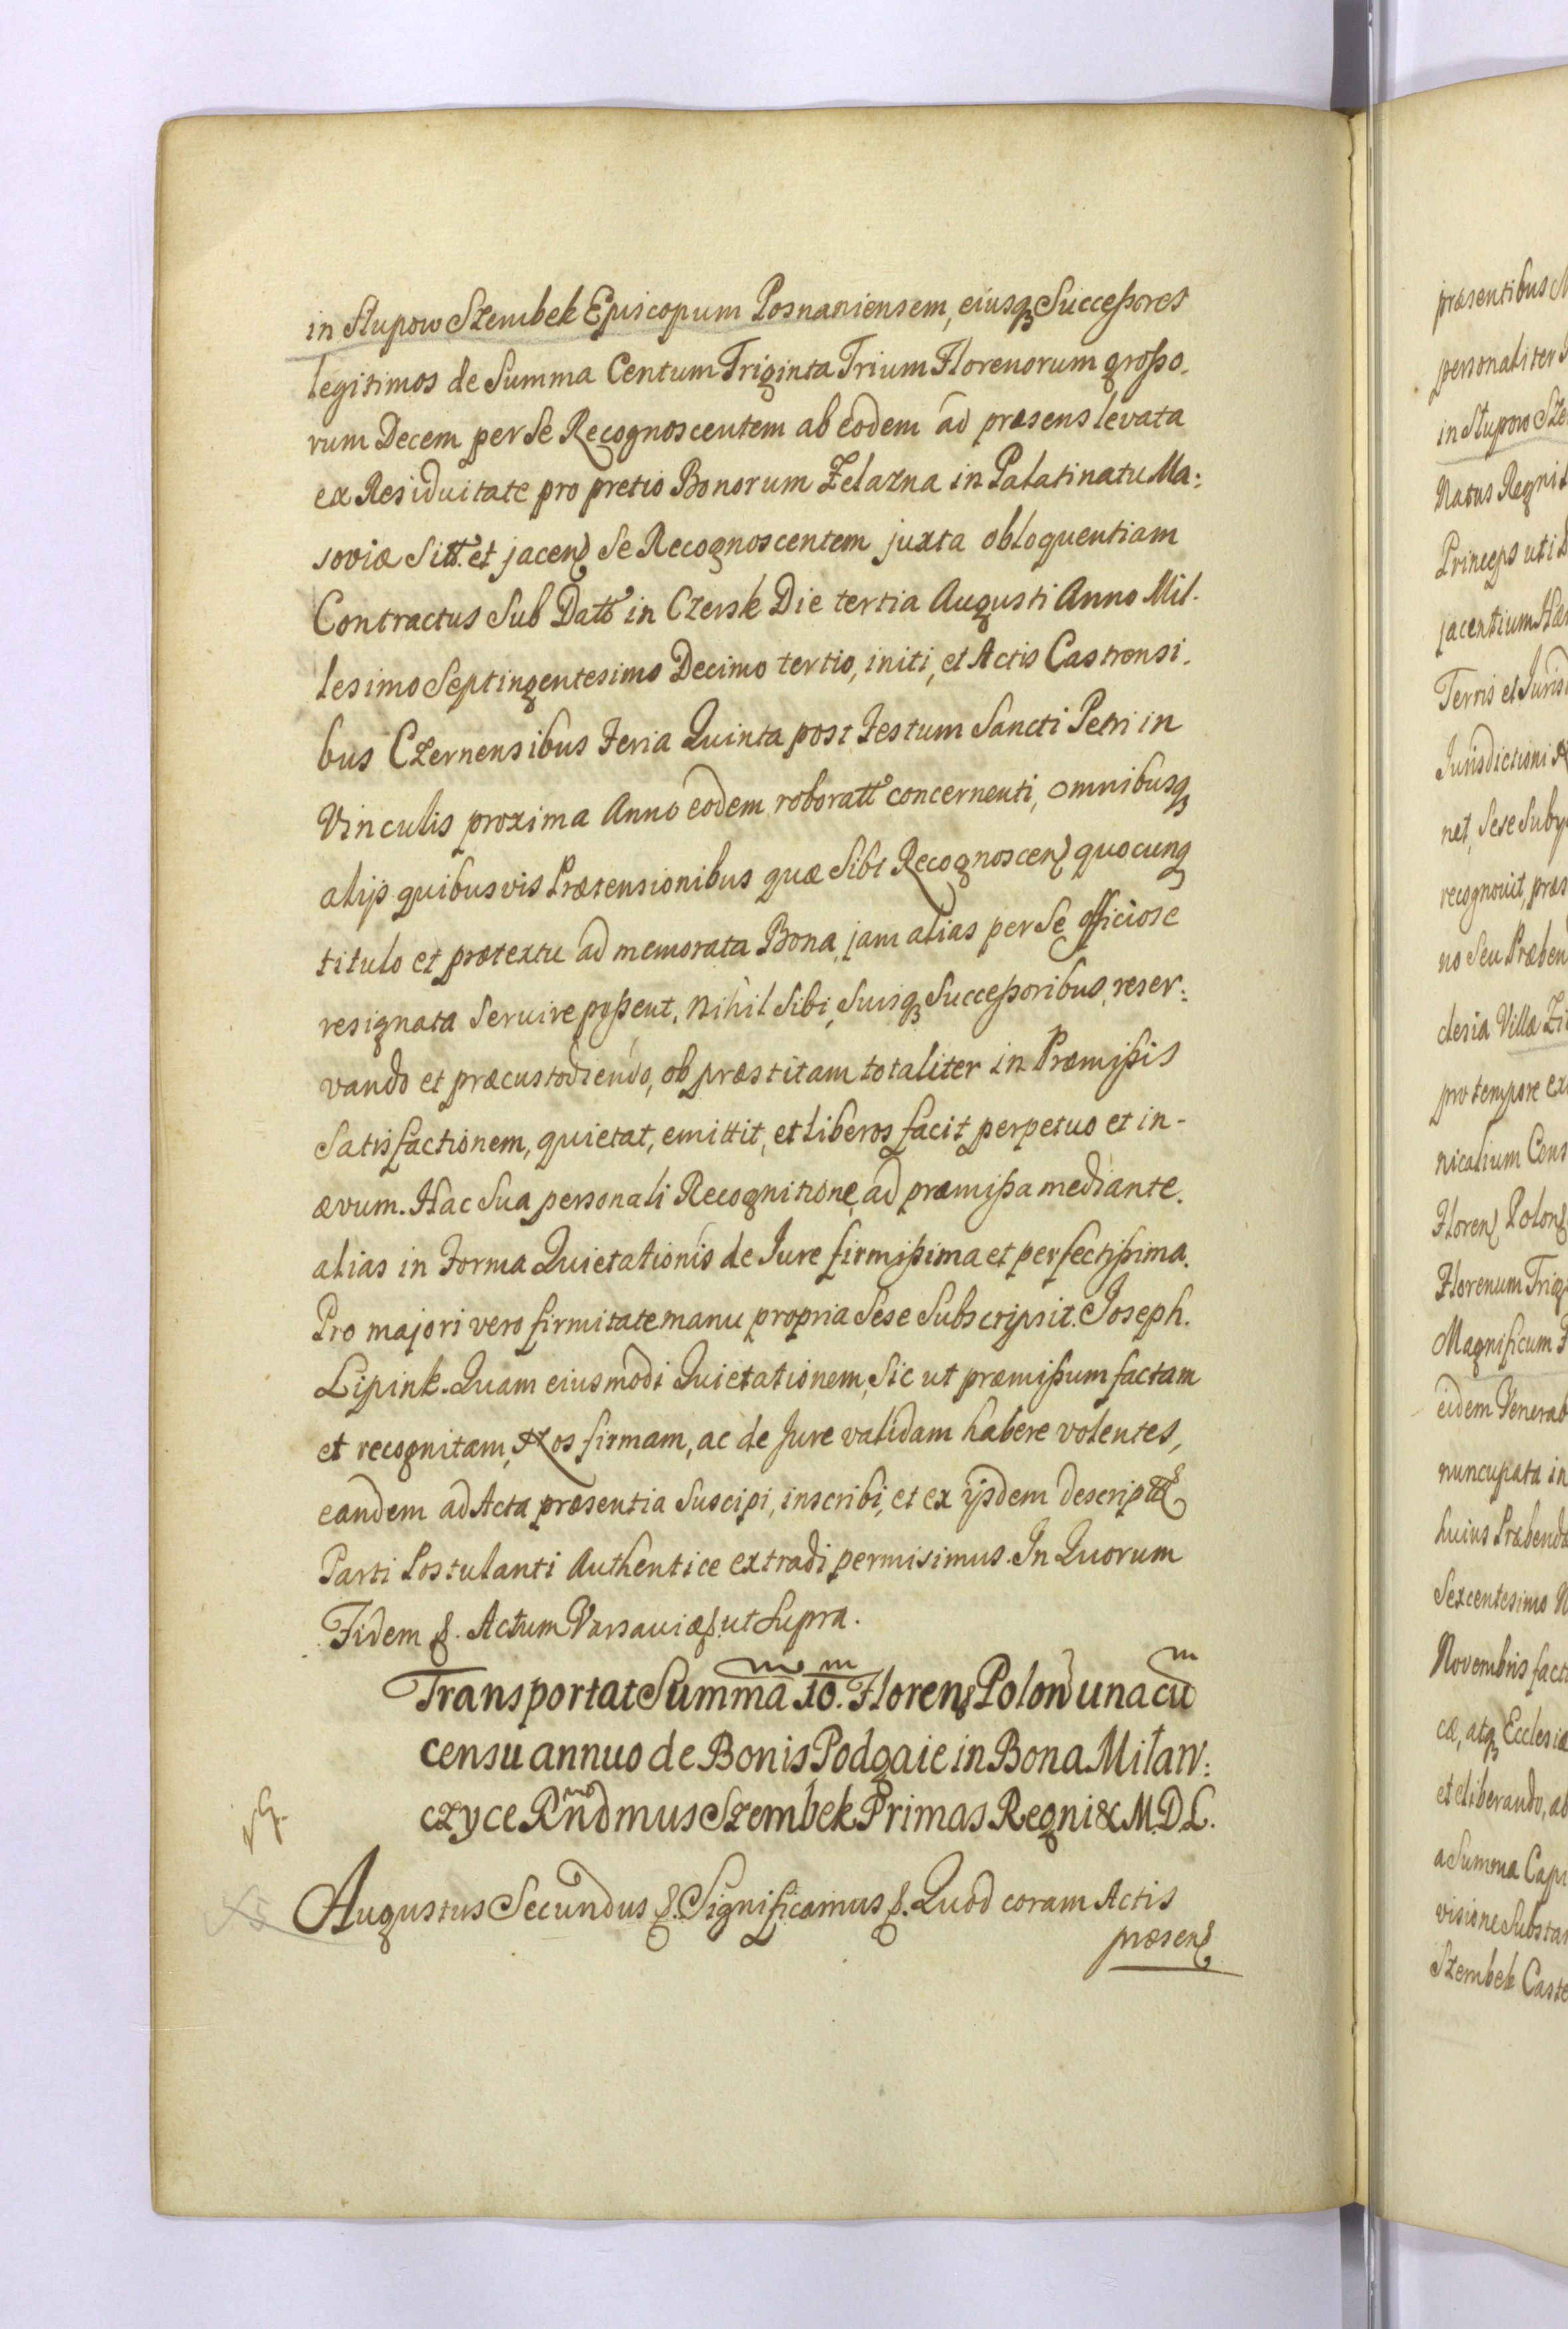 in Slupow Szembek Episcopum Posnaniensem, eiusqꝫ Successores
legitimos de Summa Centum Triginta Trium Florenorum grosso-
rum Decem per Se Recognoscentem ab eodem ad præsens levata
ex Residuitate pro pretio Bonorum Zelazna in Palatinatu Ma:
soviæ Sitt. et jacen Se Recognoscentem juxta obloquentiam
Contractus Sub Datt in Czersk Die tertia Augusti Anno Mil-
lesimo Septingentesimo Decimo tertio, initi, et Actis Castrensi-
bus Czernensibus Feria Quinta post Festum Sancti Petri in
Vinculis proxima Anno eodem roboratt concernenti, omnibusqꝫ
alijs quibusvis Prætensionibus quæ Sibi Recognoscen quocunqꝫ
titulo et prætextu ad memorata Bona, jam alias per Se officiose
resignata Servire possent, Nihil Sibi, Suisqꝫ Successoribus, reser:
vando et præcustodiendo, ob præstitam totaliter in Præmissis
Satisfactionem, quietat, emittit, et liberos facit perpetuo et in-
ævum. Hac Sua personali Recognitione, ad præmissa mediante.
alias in Forma Quietationis de Jure firmissima et perfectissima.
Pro majori vero firmitate manu propria Sese Subscripsit. Joseph.
Lipink. Quam eiusmodi Quietationem, Sic ut præmissum factam
et recognitam, Nos firmam, ac de Jure validam habere volentes,
eandem ad Acta præsentia Suscipi, inscribi, et ex ijsdem descriptt
Parti Postulanti Authentice extradi permisimus. In Quorum
Fidem &. Actum Varsaviæ &. ut Supra.
Transportat Summa 10. Floren Polon una cu
censu annuo de Bonis Podgaie in Bona Milaw:
czyce Rndmus Szembek Primas Regni & M.D.L.
Augustus Secundus &. Significamus &. Quod coram Actis
præsen
præsentibus
personaliter
in Slupow Sze
Natus Regni
Princeps uti
jacentium
Terris et Juris
Jurisdictioni
net, Sese Suby
recognovit, præs
no Seu Præben
clesia Villa
pro tempore ex
nicalium Cens
Floren Polon
Florenum Trig
Magnificum
eidem Venerab
nuncupata in
huius Præbenda
Sexcentesimo
Novembris fact
cæ, atqꝫ Ecclesiæ
et eliberando, ab
a Summa Capi
visione Substan
Szembek Caste